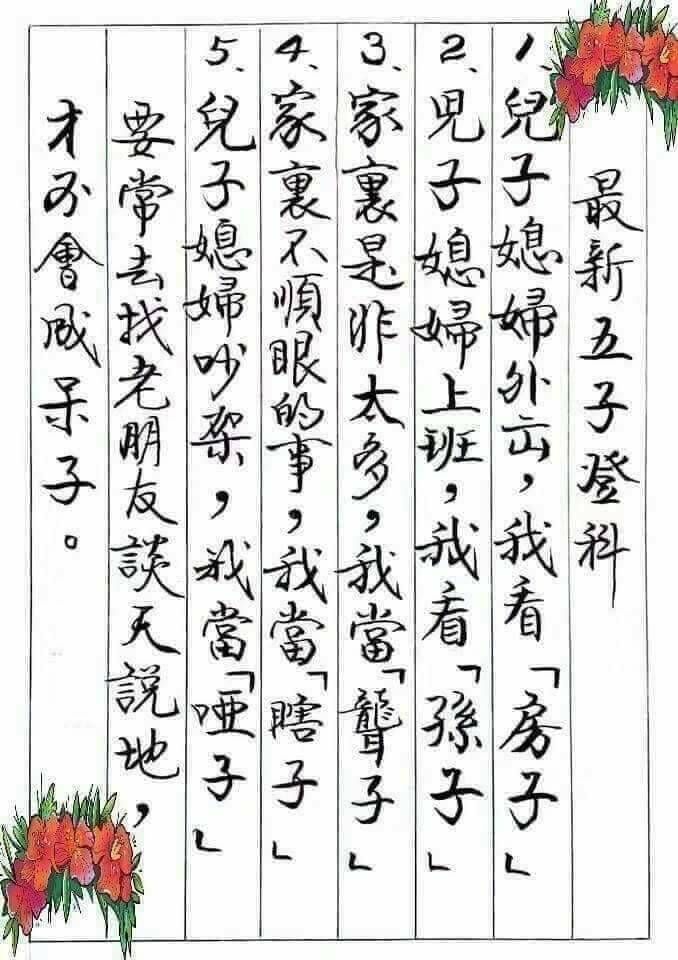 最新五子登科
1、兒子媳婦外出，我看「房子」
2、兒子媳婦上班，我看「孫子」
3、家裏是非太多，我當「聾子」
4、家裏不順眼的事，我當「瞎子」
5、兒子媳婦吵架，我當「啞子」
要常去找老朋友談天説地，
才不會成呆子。